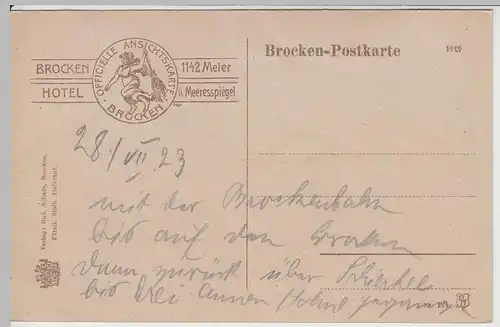 BROCKEN
HOTEL
OFFICIELLE ANSICHTSKARTE
BROCKEN
1142 Meter
ü. Meeresspiegel
Brocken-Postkarte
28/VII 23
mit der Brockenbahn
bis auf den Brocken
dann zurück über Schierke
bis drei Annen Hohne gegangen
Verlag: Rud. Schade, Brocken.
Fürstl. Stolb. Hoflieferant.